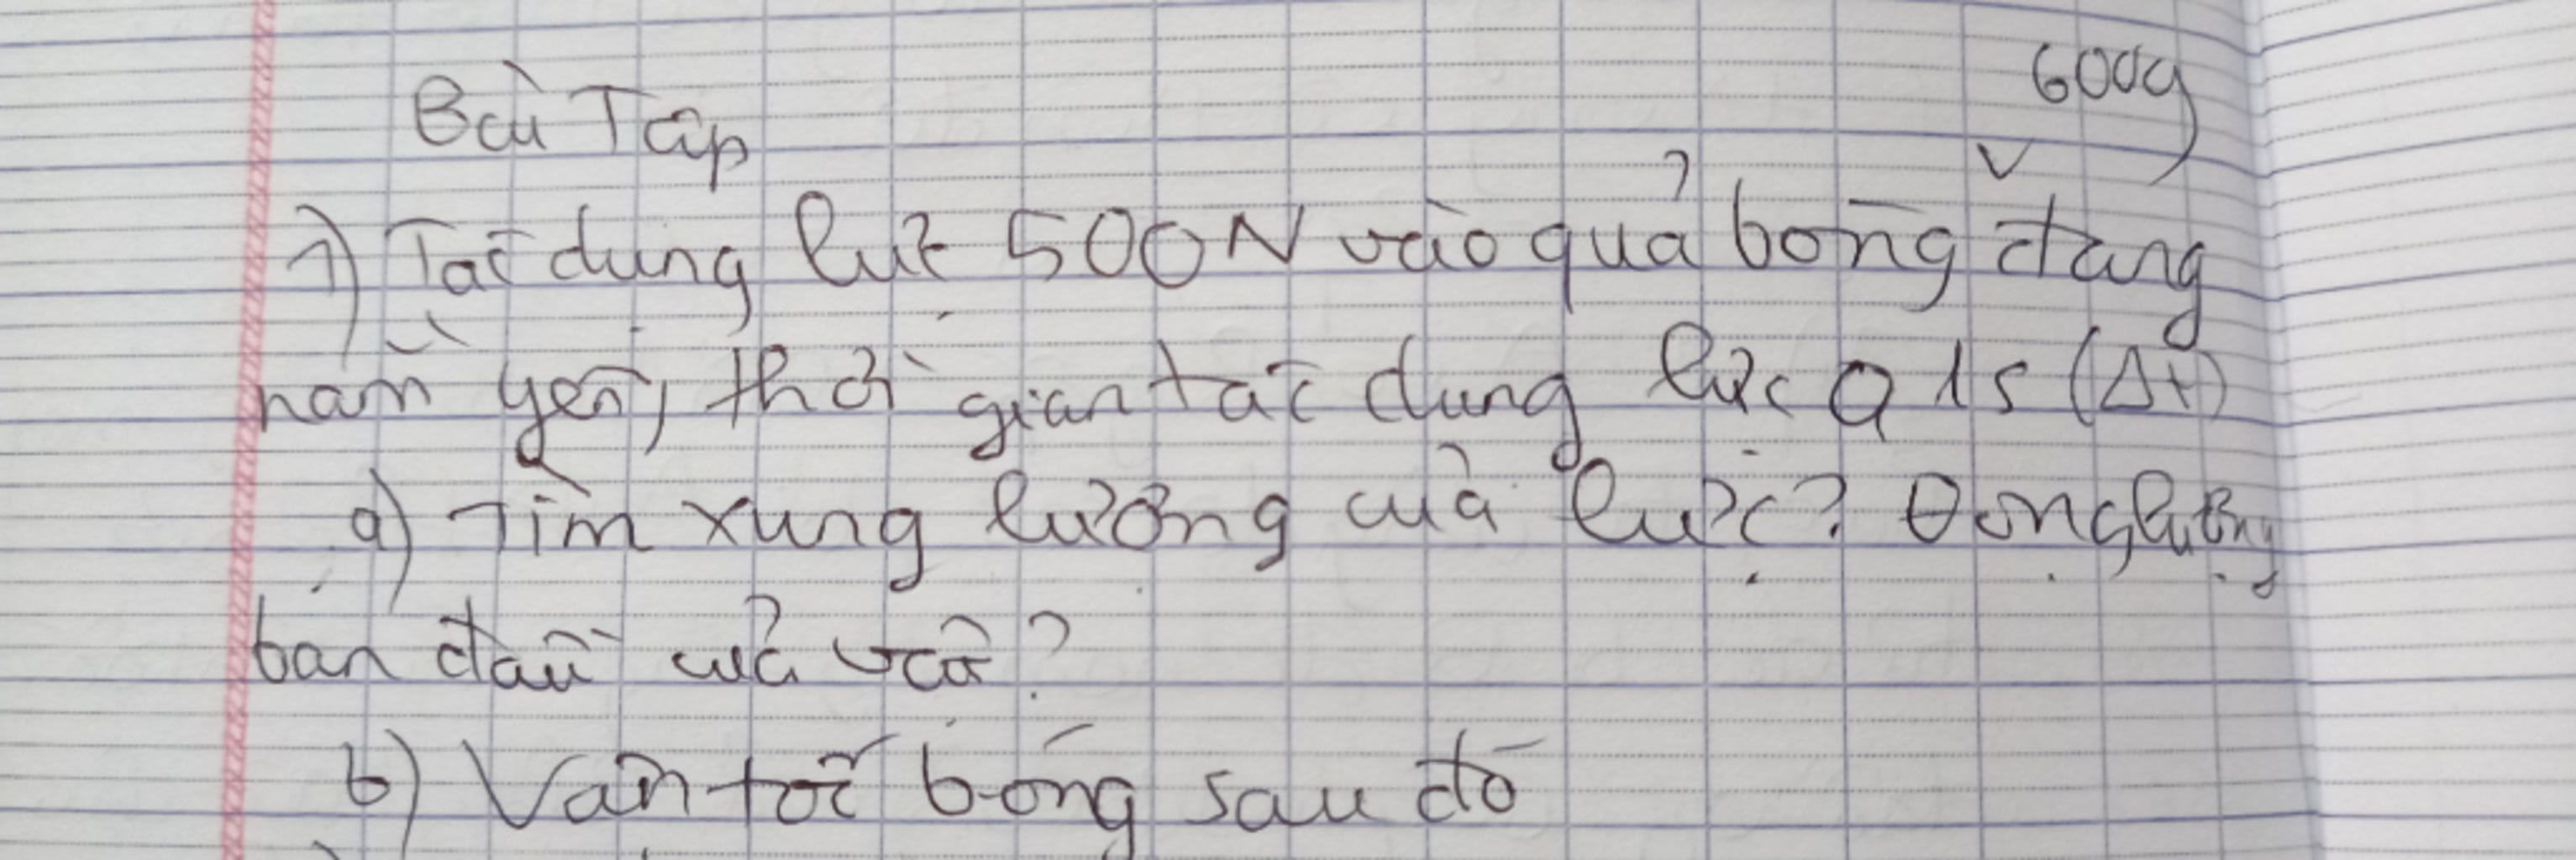 Bài Tập
600g
1) Tác dụng lực 500N vào quả bóng đang
nằm yên, thời gian tác dụng lực 0,1s (Δt)
a) Tìm xung lượng của lực? Động lượng
ban đầu của vật?
b) Vận tốc bóng sau đó